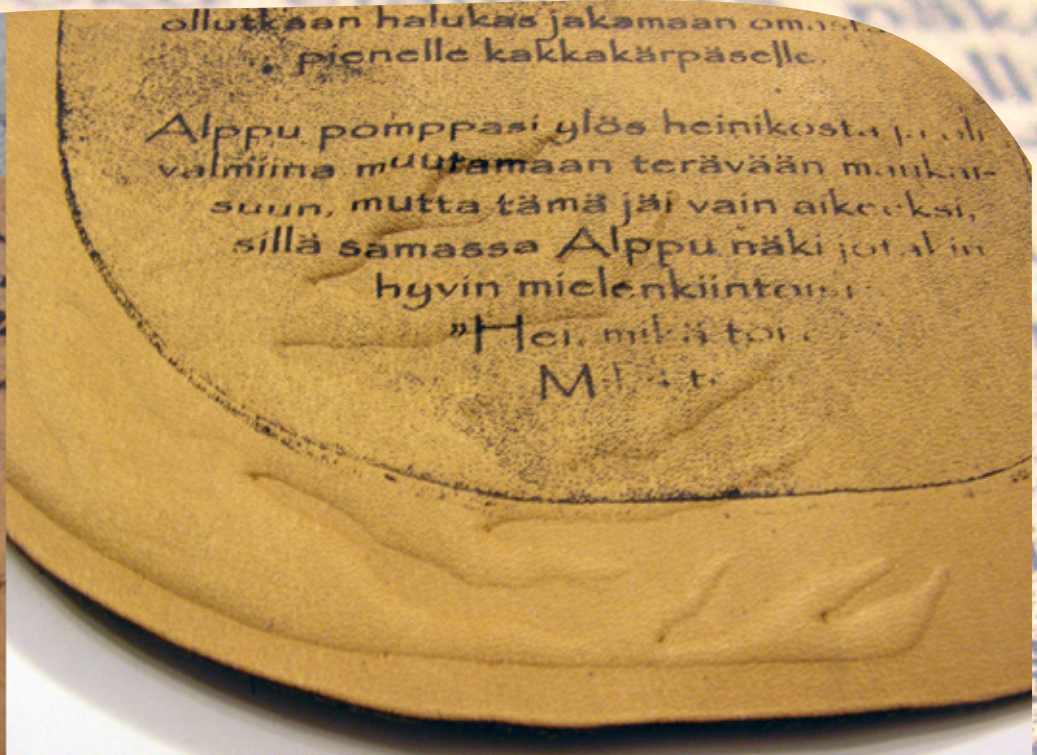 ollutkaan halukas jakamaan
pienelle kakkakärpäselle.
Alppu pomppasi ylös heinikosta ja oli
valmiina muutamaan terävään maukai-
suun, mutta tämä jäi vain aikeeksi,
sillä samassa Alppu näki jotakin
hyvin mielenkiintoista
”Hei, mikä toi
M